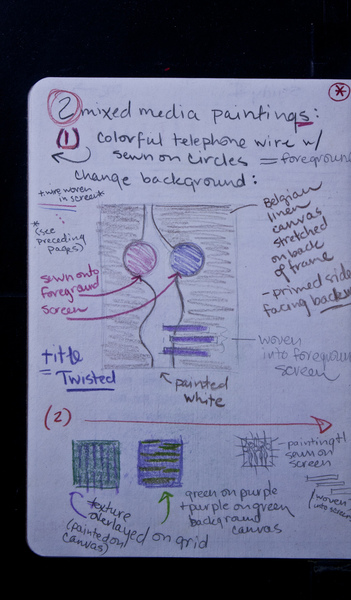 2 mixed media paintings:
(1) colorful telephone wire w/
sewn on circles = foreground
change background:
+ wire woven
in screen*
*(see
preceding
pages)
Belgian
linen
canvas
stretched
on back
of frame
- primed side
facing back
sewn onto
foreground
screen
woven
into foreground
screen
+ title
= Twisted
painted
white
(2)
texture
overlayed on grid
(painted on
canvas)
green on purple
+ purple on green
background
canvas
- painting +
sewn on
screen
(woven
into screen